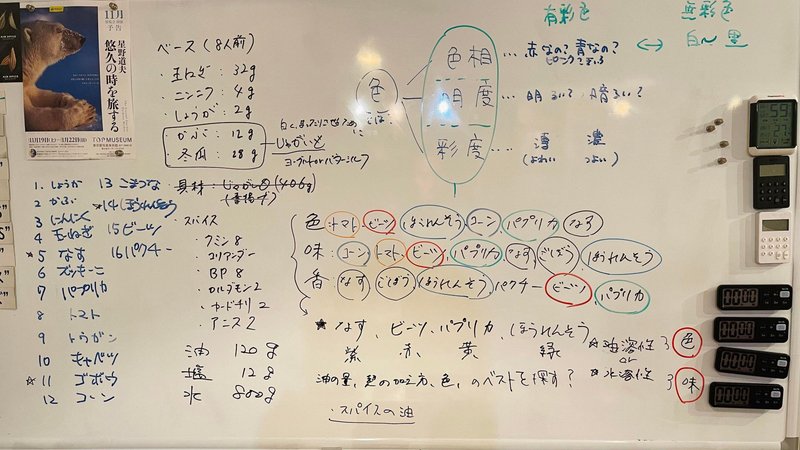 11月
予告
星野道夫
悠久の時を旅する
TOP MUSEUM
ベース（8人前）
・玉ねぎ：32g
・ニンニク：4g
・しょうが：2g
・かぶ：12g
・冬瓜：28g
じゃがいも
ヨーグルトorバターミルク
具材：じゃがいも(406g)
(素揚げ)
1. しょうが
2 かぶ
3 にんにく
4 玉ねぎ
★5 なす
6 ズッキーニ
7 パプリカ
8 トマト
9 トウガン
10 キャベツ
★11 ゴボウ
12 コーン
13 こまつな
★14 ほうれんそう
15 ビーツ
16 パクチー
スパイス
・クミン 8
・コリアンダー
・BP 8
・カルダモン 2
・カードチリ 2
・アニス 2
油 120g
塩 12g
水 800g
有彩色
無彩色
白〜黒
色
色相…赤なの？青なの？
明度…明るい？暗るい？
彩度…薄 濃
(よわい) (つよい)
色：トマト、ビーツ、ほうれんそう、コーン、パプリカ、なす
味：コーン、トマト、ビーツ、パプリカ、なす、ごぼう、ほうれんそう
香：なす、ごぼう、ほうれんそう、パクチー、ビーツ、パプリカ
★なす、ビーツ、パプリカ、ほうれんそう
紫 赤 黄 緑
☆油溶性 色
or
☆水溶性 味
油の量、熱の加え方、色、のベストを探す？
・スパイスの油